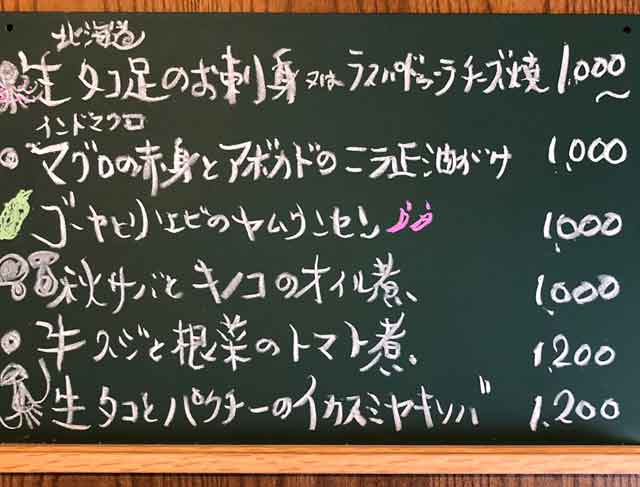 北海道
生タコ足のお刺身 又は ラスパドゥーラチーズ焼 1,000〜
インドマグロ
マグロの赤身とアボカドのニラ正油がけ 1,000
ゴーヤと小エビのヤムウンセン 1,000
秋サバとキノコのオイル煮、 1,000
牛スジと根菜のトマト煮、 1,200
生タコとパクチーのイカスミヤキソバ 1,200